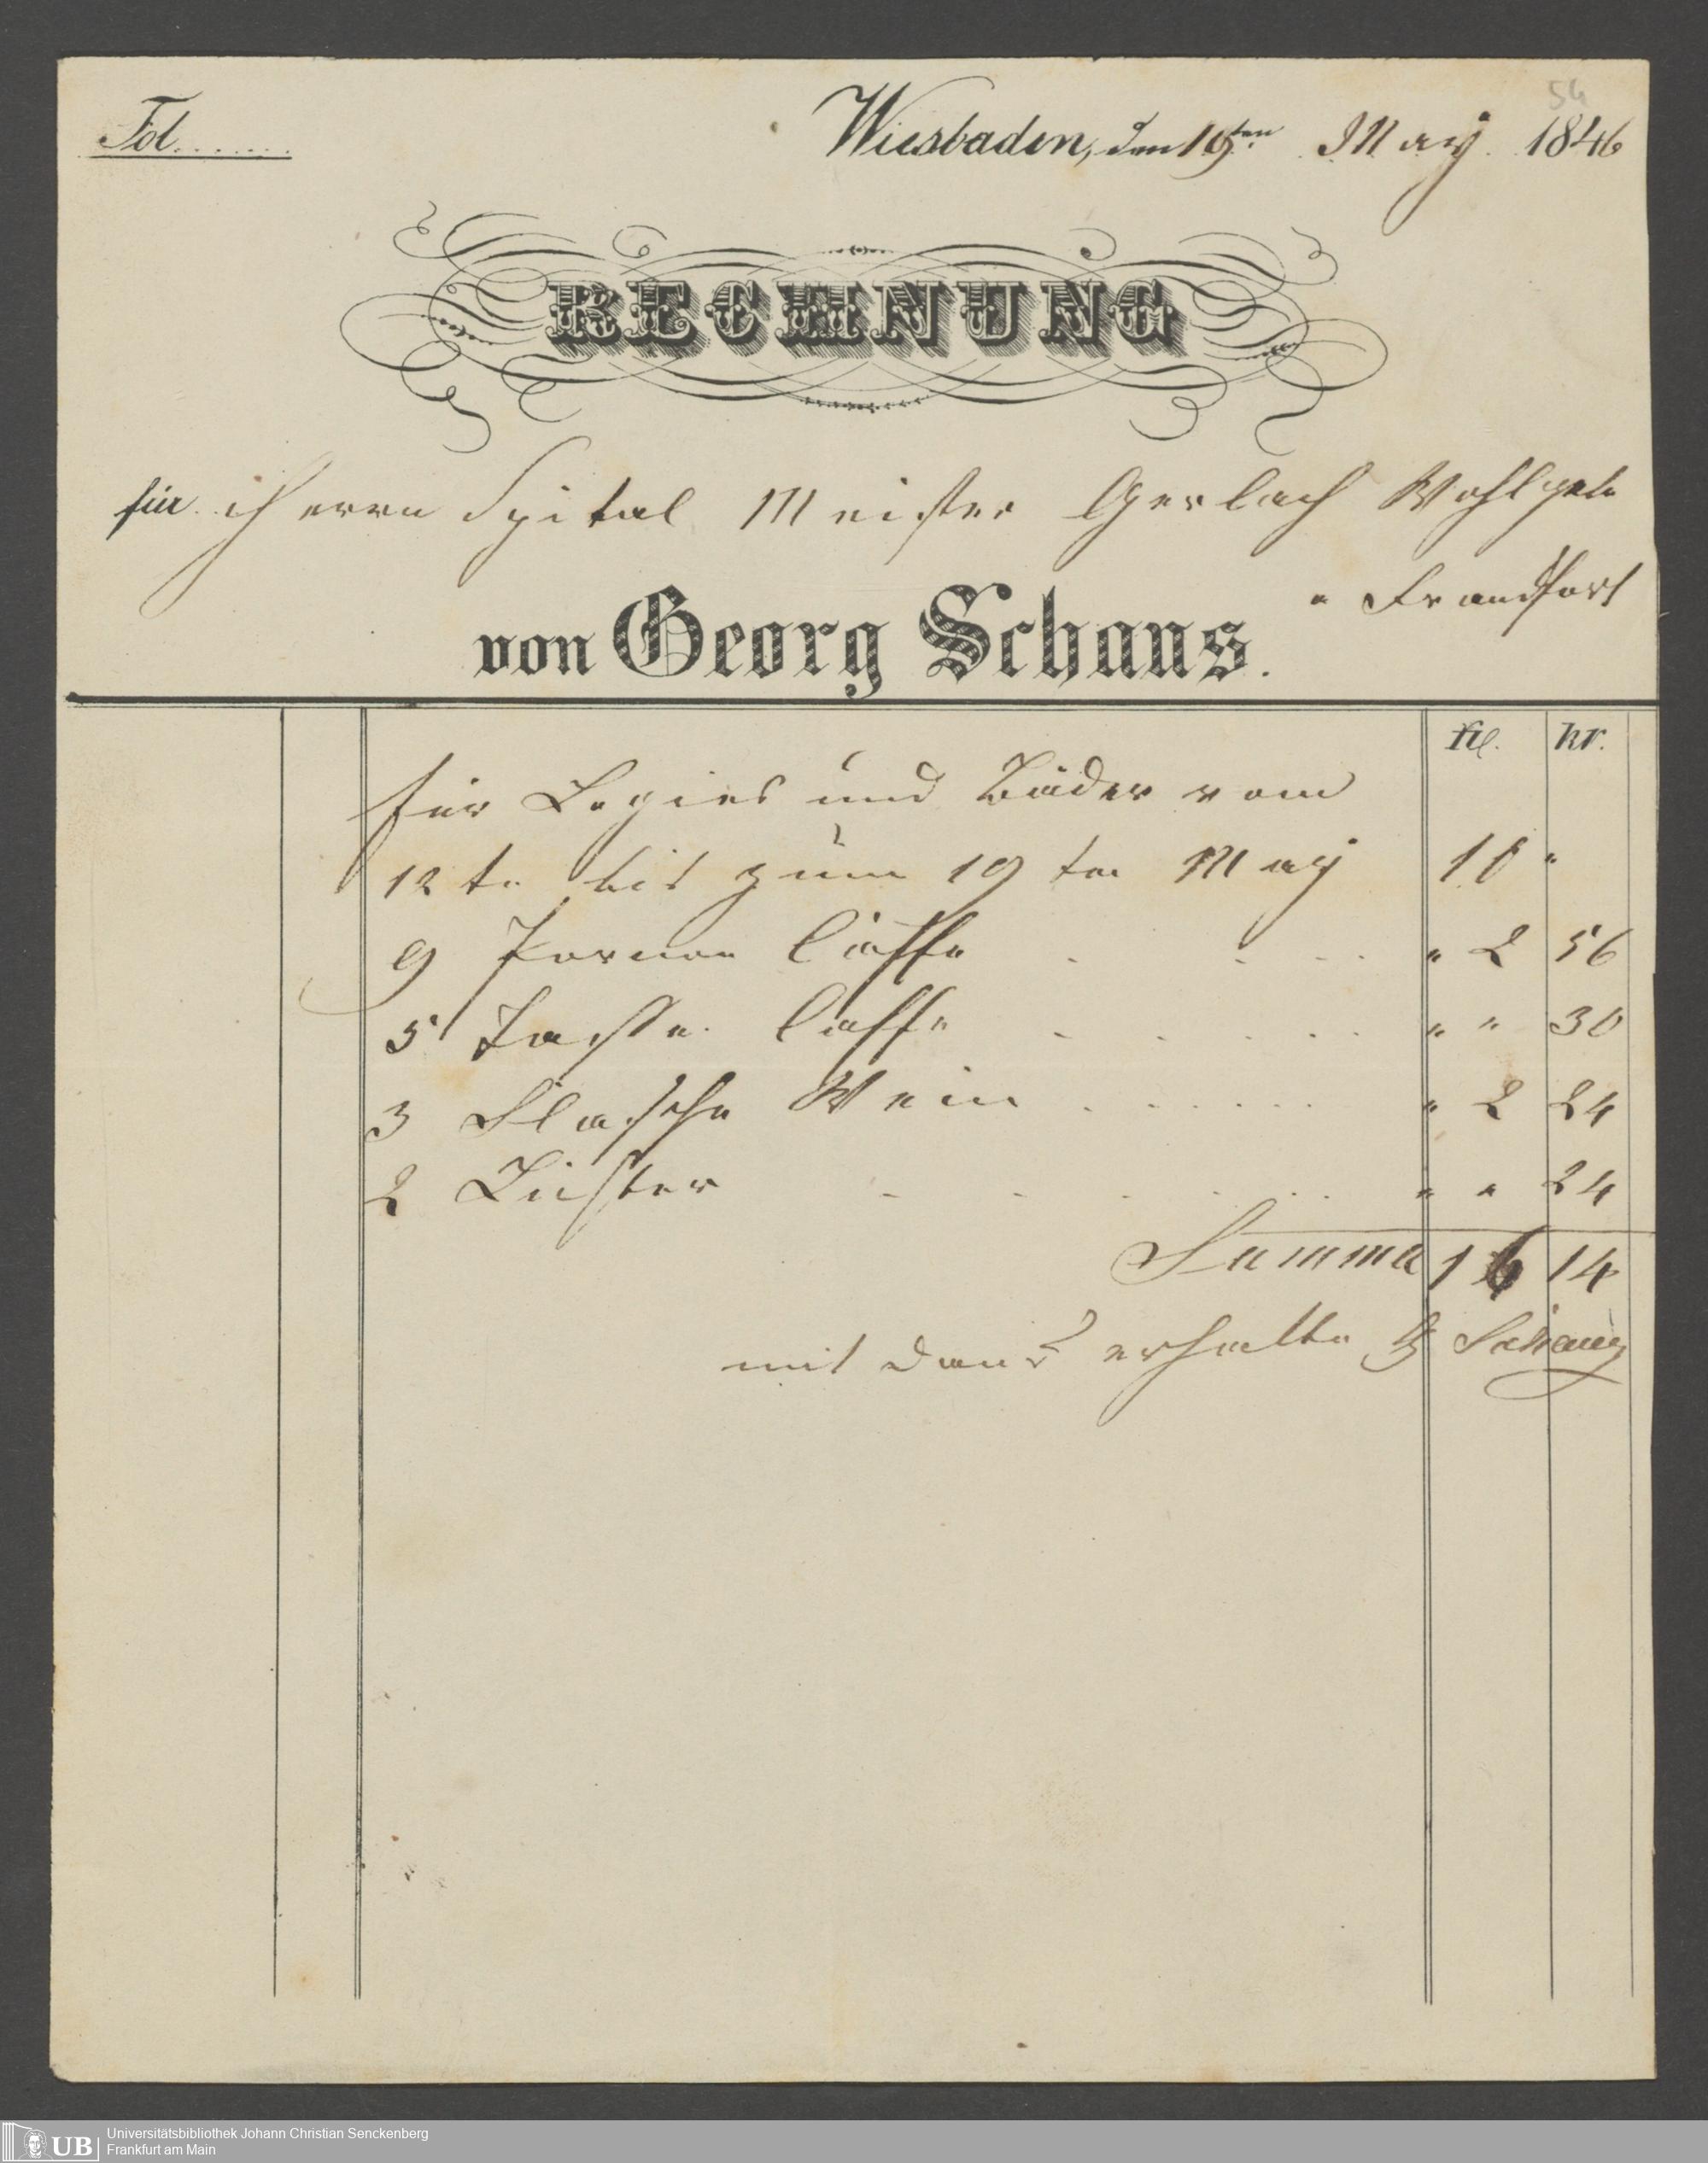 54
Fol.......
Wiesbaden, den 19ten May 1846
RECHNUNG
für Herrn Spital Meister Gerlach Wohlgeb
" Franckfort
von Georg Schaus.
fl. kr.
für Logies und Bäder vom
12te bis zum 19ten May 10 "
9 Caffe . . . . " 2 56
5 Tasse Caffe . . . . . " " 30
3 Flasche Wein . . . . . . " 2 24
2 Lichter . . . . . . " " 24
Summa 16 14
mit Dank erhalten G Schaus
UB
Universitätsbibliothek Johann Christian Senckenberg
Frankfurt am Main